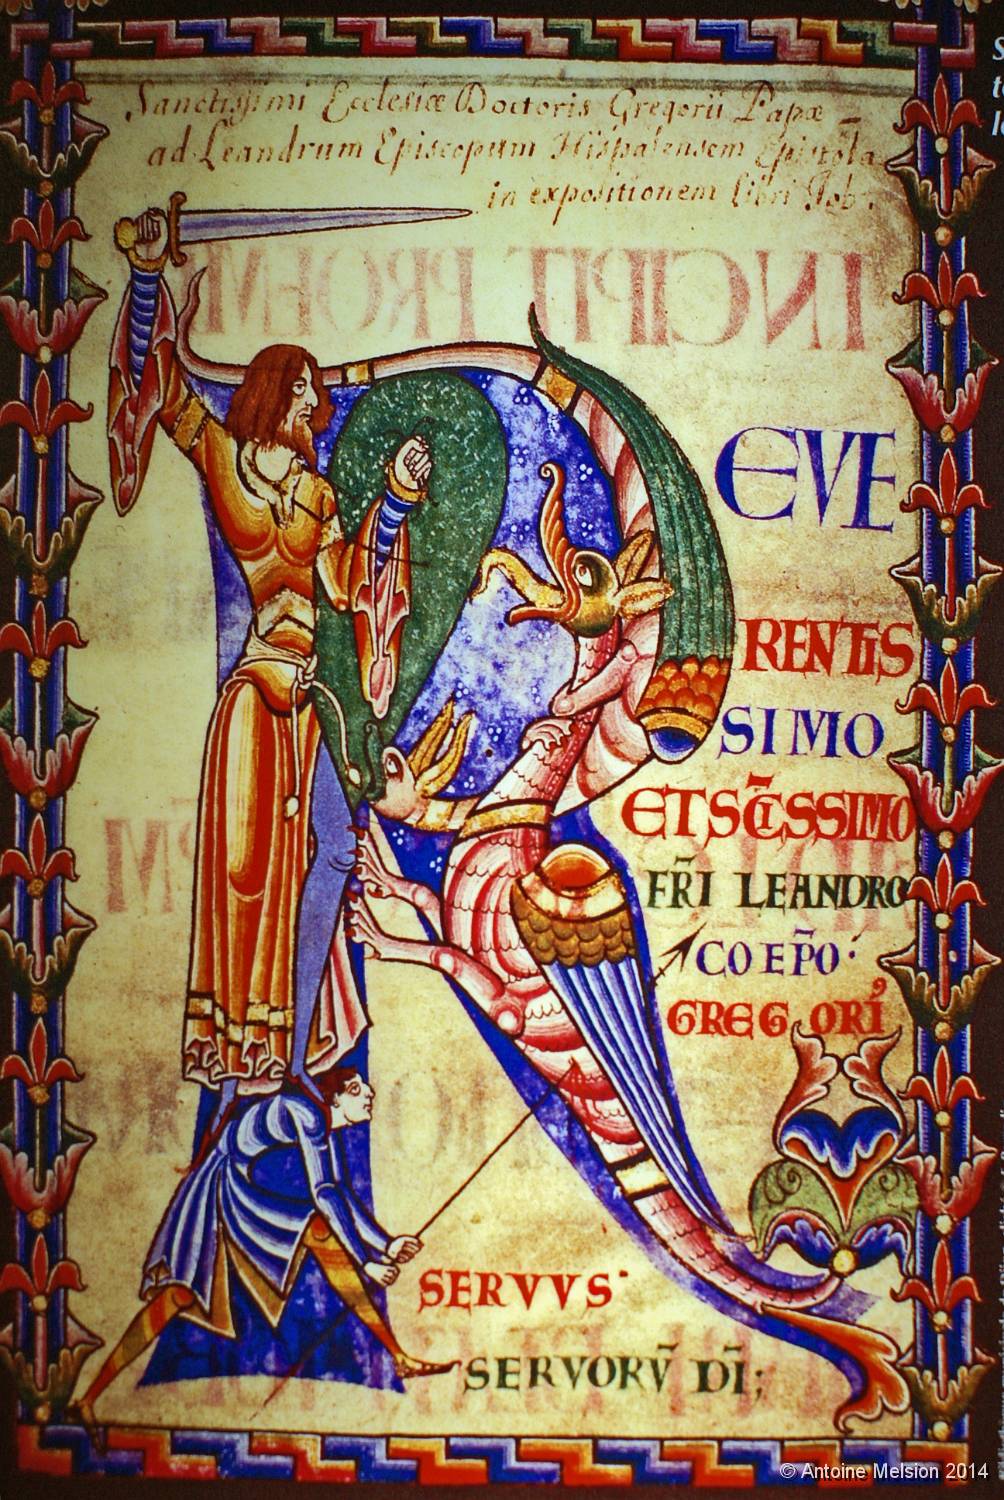 Sanctissimi Ecclesiæ Doctoris Gregorii Papæ
ad Leandrum Episcopum Hispalensem Epistola
in expositionem libri Job.
INCIPIT PROEM
R
EVE
RENTIS
SIMO
ET SC̄ISSIMO
FR̄I LEANDRO
COEP̄O·
GREGORI᾽
SERVVS·
SERVORV̄ DI̅;
© Antoine Melsion 2014